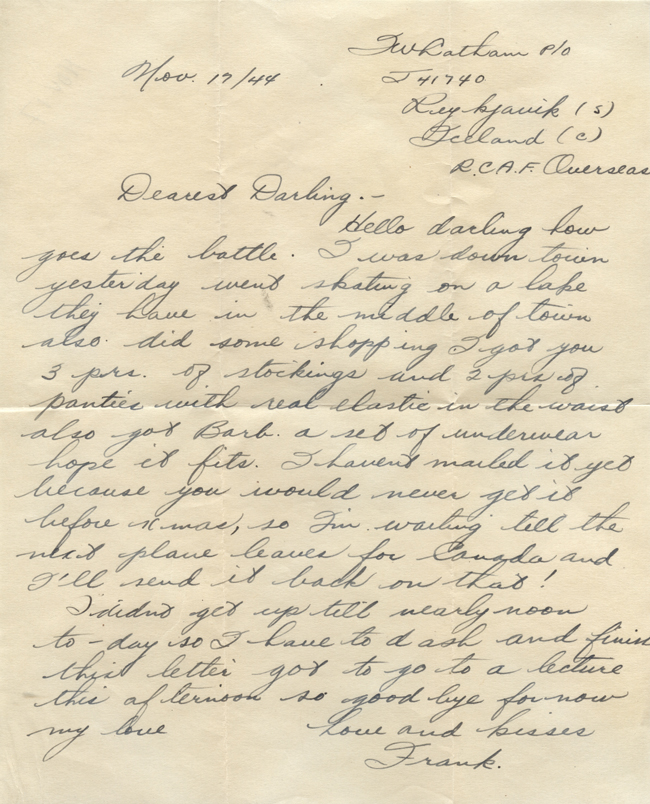 F W Latham P/O
Nov. 17/44
J 41740
Reykjavik (S)
Iceland (C)
R.C.A.F. Overseas
Dearest Darling.-
Hello darling how
goes the battle. I was down town
yesterday went skating on a lake
they have in the middle of town
also did some shopping I got you
3 prs. of stockings and 2 prs of
panties with real elastic in the waist
also got Barb. a set of underwear
hope it fits. I havent mailed it yet
because you would never get it
before xmas, so I'm waiting till the
next plane leaves for Canada and
I'll send it back on that!
I didnt get up till nearly noon
to-day so I have to dash and finish
this letter got to go to a lecture
this afternoon so good bye for now
my love love and kisses
Frank.